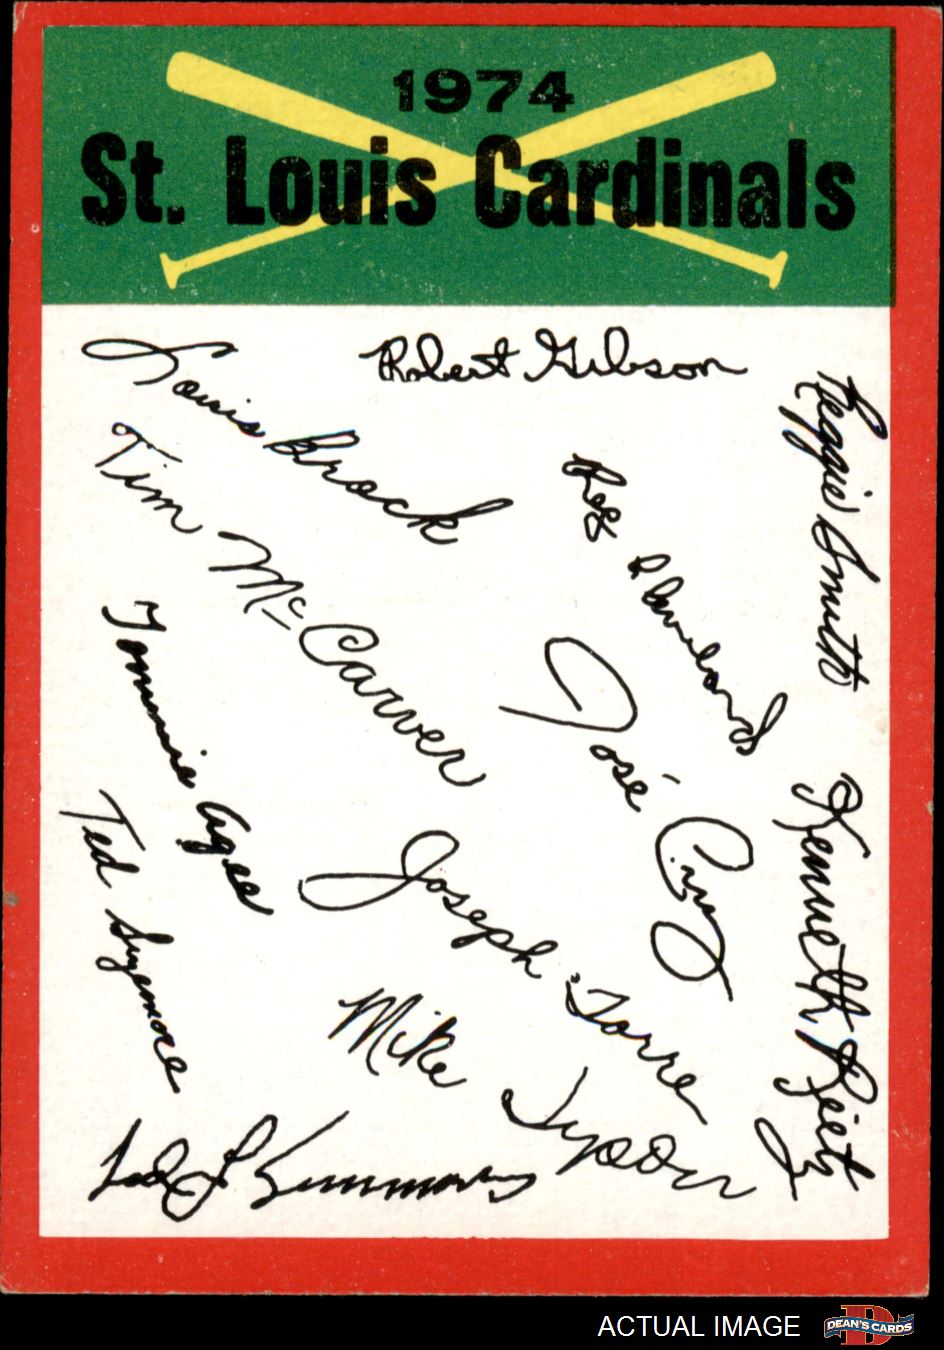 1974
St. Louis Cardinals
Robert Gibson
Louis Brock
Reggie Smith
Tim McCarver
Tommie Agee
José Cruz
Kenneth Reitz
Ted Sizemore
Joseph Torre
Mike Tyson
Ted L Simmons
ACTUAL IMAGE
DEAN'S CARDS